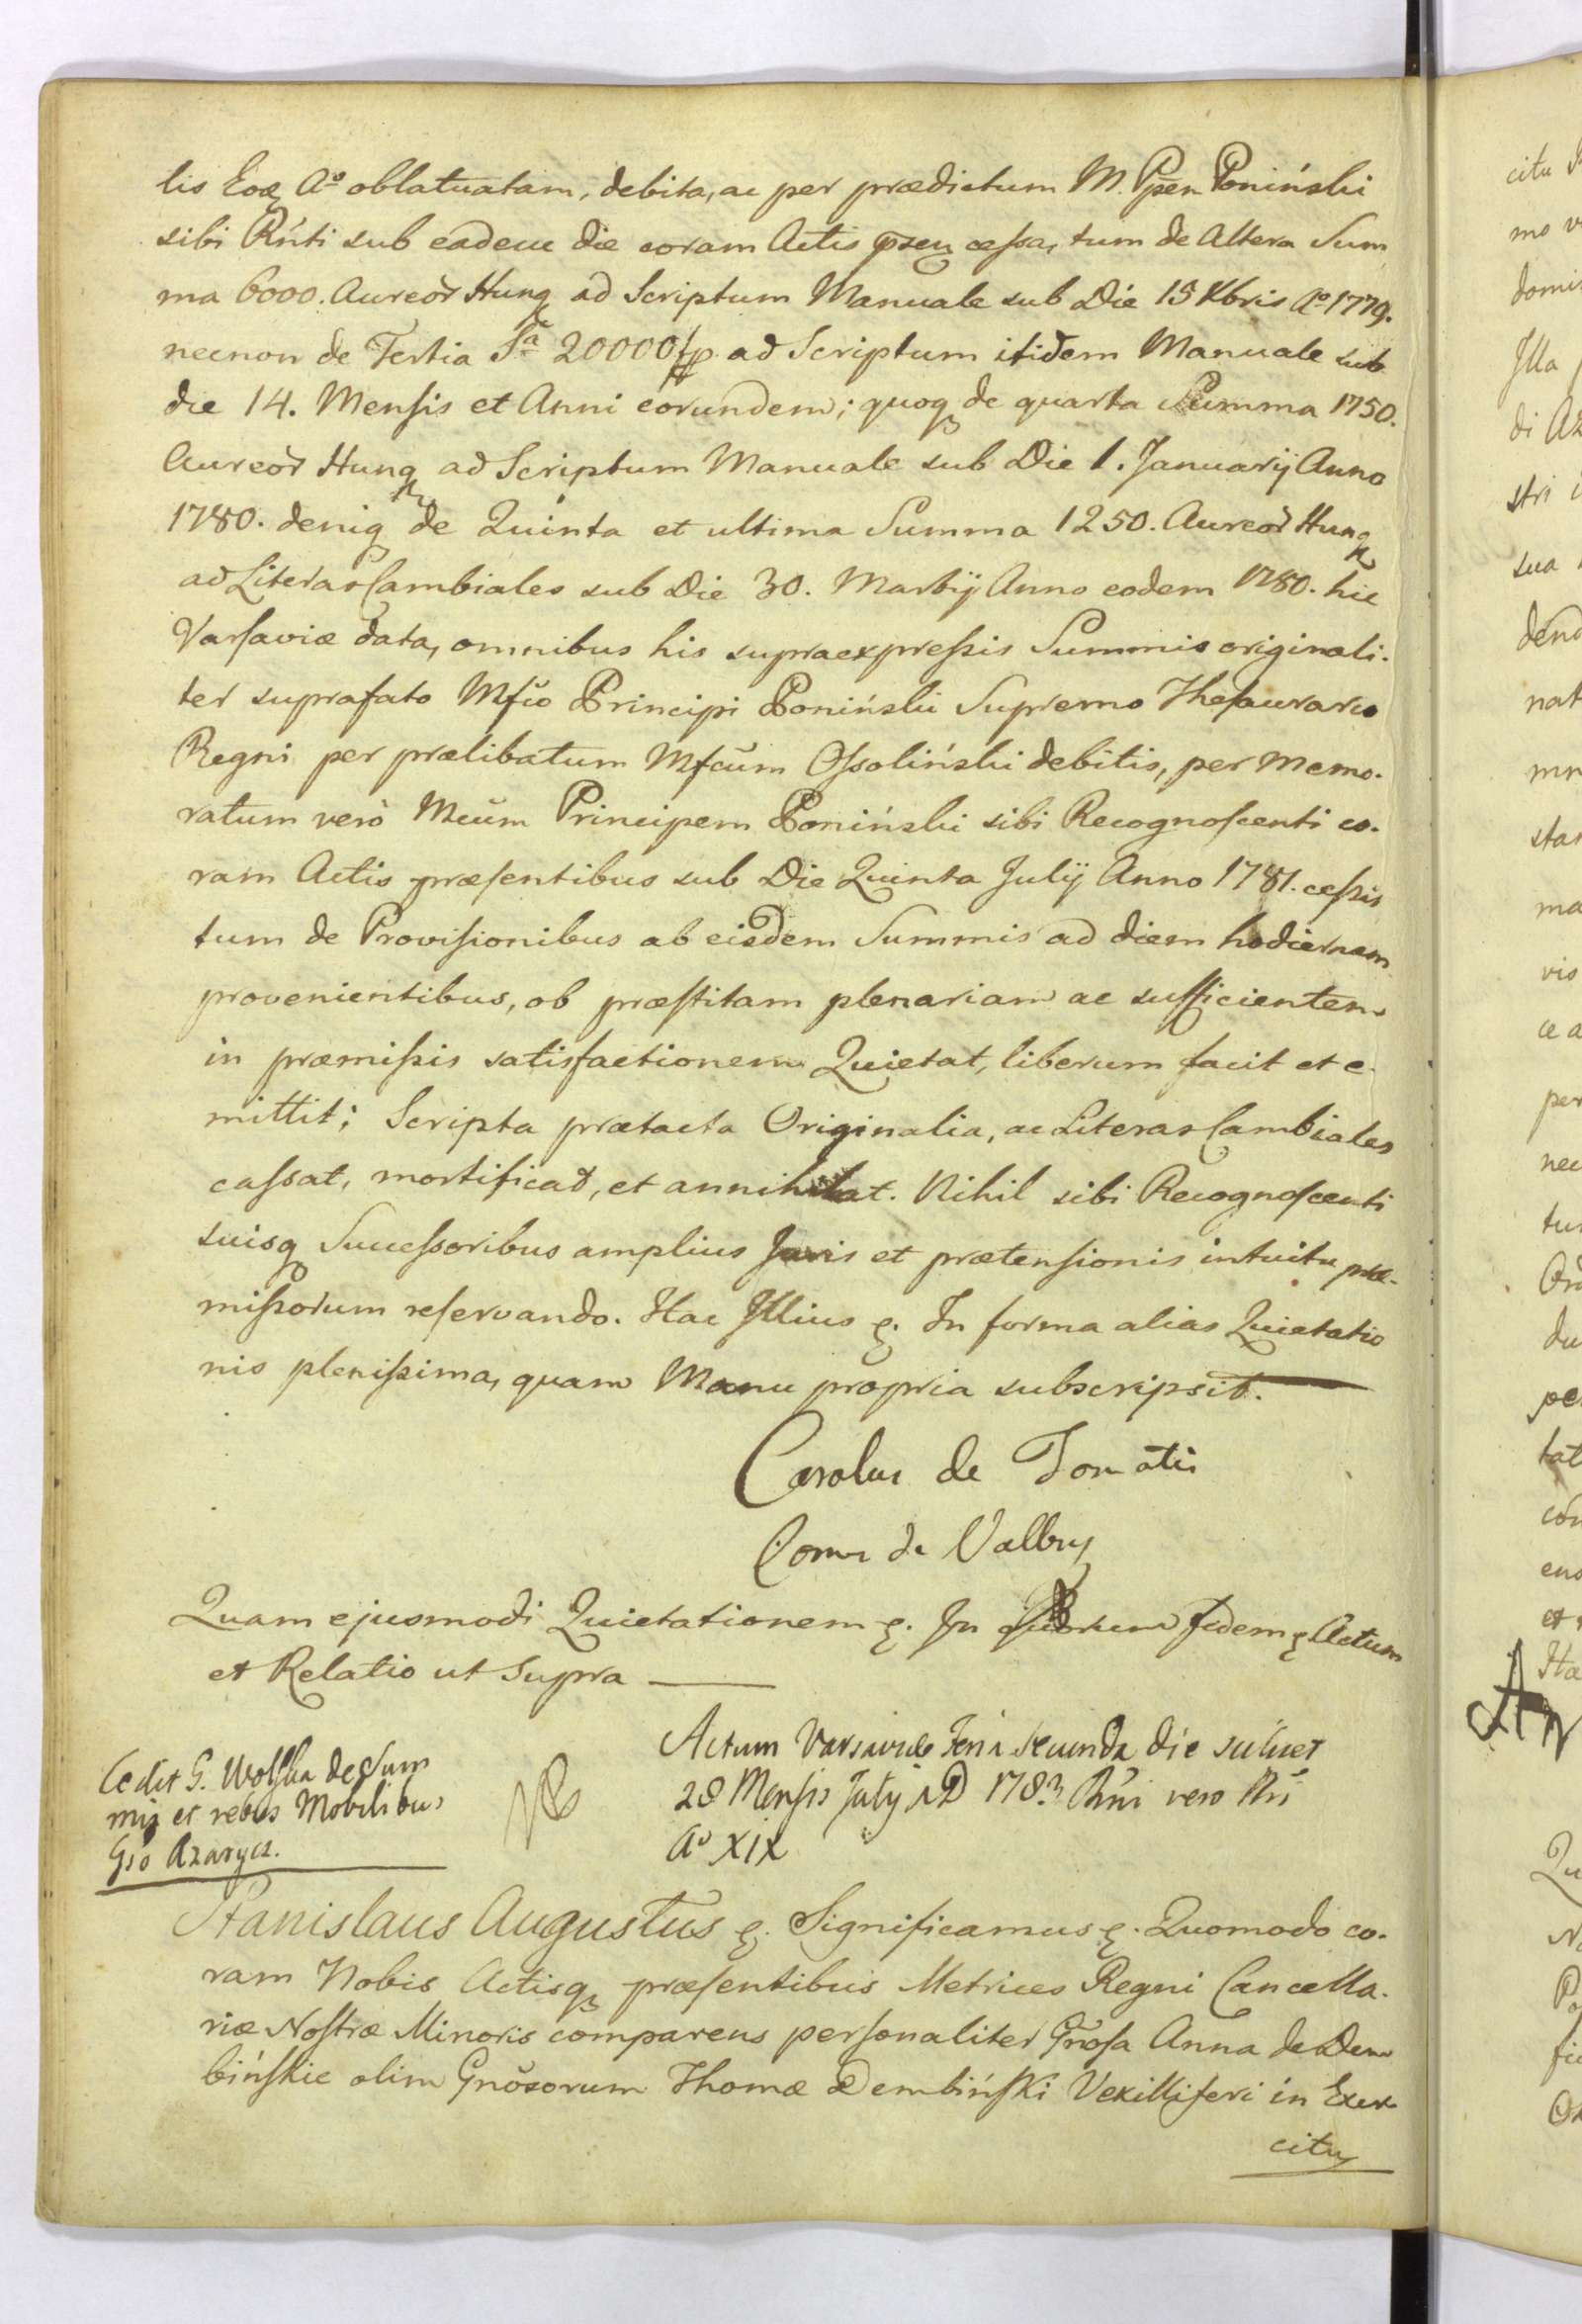 lis Eoq Aº oblatuatam, debita, ac per prædictum M. Ppem Poniński
sibi Rńti sub eadem die coram Actis cessa, tum de Altera Sum
ma 6000. Aureor Hung ad Scriptum Manuale sub Die 15 Xbris Aº 1779.
necnon de Tertia Sa 20000 fp ad Scriptum itidem Manuale sub
die 14. Mensis et Anni eorundem; quoq de quarta Summa 1750.
Aureor Hung ad Scriptum Manuale sub Die 1. Januarij Anno
1780. deniq de Quinta et ultima Summa 1250. Aureor Hung
ad Literas Cambiales sub Die 30. Martij Anno eodem 1780. hic
Varsaviæ data, omnibus his supraexpressis Summis originali-
ter suprafato Mfco Principi Poniński Supremo Thesaurario
Regni per prælibatum Mfcum Ossoliński debitis, per Memo-
ratum verò Mcum Principem Poniński sibi Recognoscenti co-
ram Actis præsentibus sub Die Quinta Julij Anno 1781. cessis
tum de Provisionibus ab eisdem Summis ad diem hodiernam
provenientibus, ob præstitam plenariam ac sufficientem
in præmissis satisfactionem Quietat, liberum facit et e-
mittit; Scripta prætacta Originalia, ac Literas Cambiales
cassat, mortificat, et annihilat. Nihil sibi Recognoscenti
suisq Successoribus amplius Juris et prætensionis intuitu præ-
missorum reservando. Hac Illius ꝛ. In forma alias Quietatio
nis plenissima, quam Manu propria subscripsit.
Carolus de Tomatis
Comes de Vallery
Quam ejusmodi Quietationem ꝛ. In quorum fidem ꝛ Actum
et Relatio ut Supra
Cedit G. Wolska de Sum
mis et rebus Mobilibus
Gso Azarycz.
Actum Varsaviæ Feria secunda die scilicet
28 Mensis Julij AD 1783 Rńi vero Nri
Aº XIX
Stanislaus Augustus ꝛ. Significamus ꝛ. Quomodo co-
ram Nobis Actisq præsentibus Metrices Regni Cancella-
riæ Nostræ Minoris comparens personaliter Gnosa Anna de Dem
bińskie olim Gnosorum Thomæ Dembiński Vexilliferi in Exer
citu